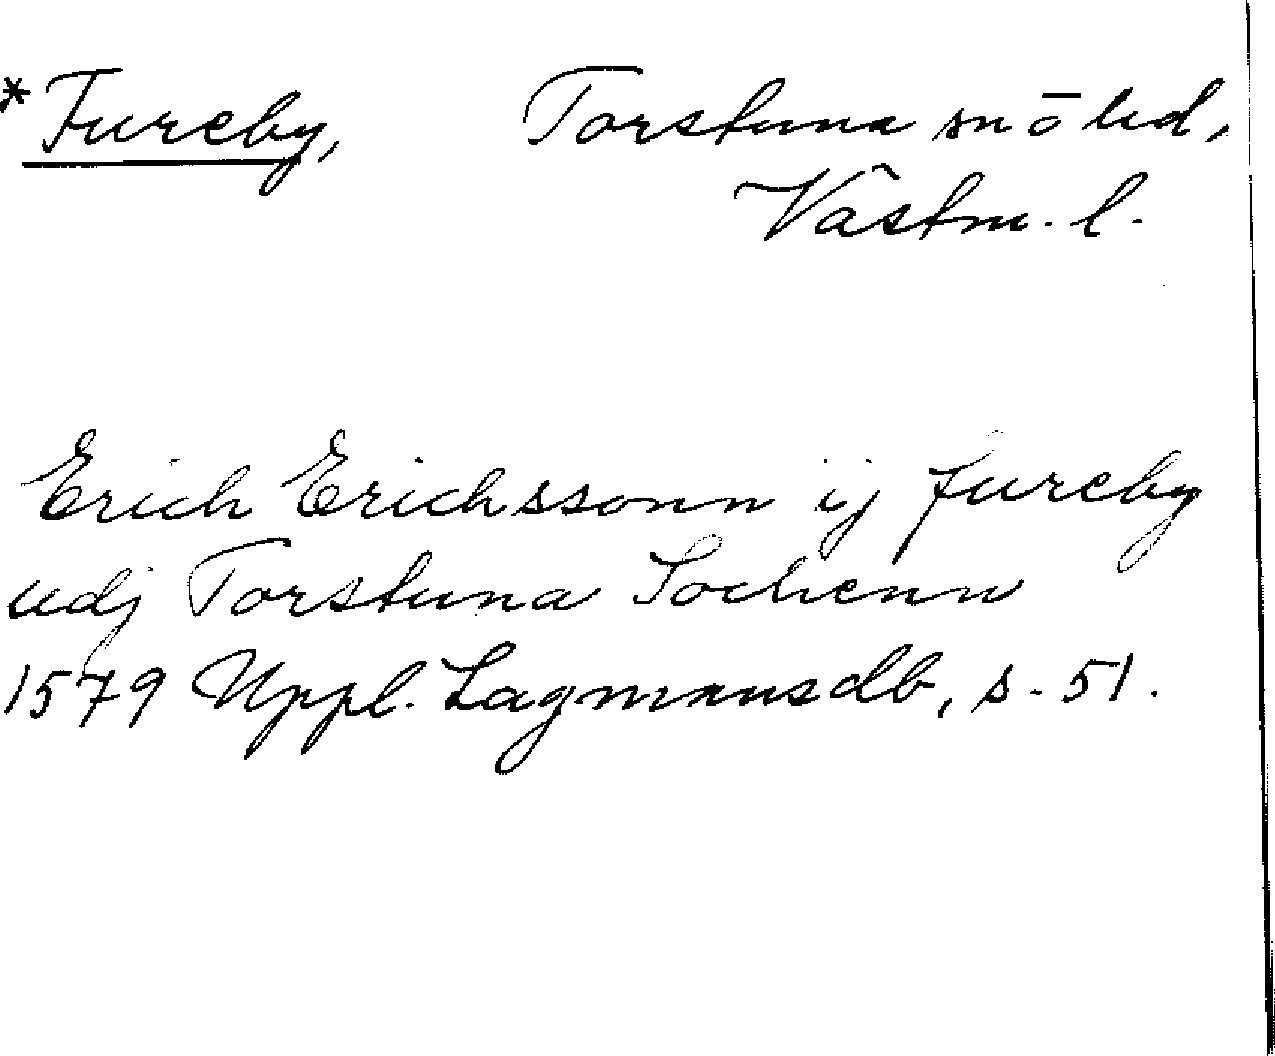 *Fureby, Torstuna sn o hd,
Västm. l.
Erich Erichssonn ij fureby
udj Torstuna Sochenn
1579 Uppl. Lagmansdb, s. 51.